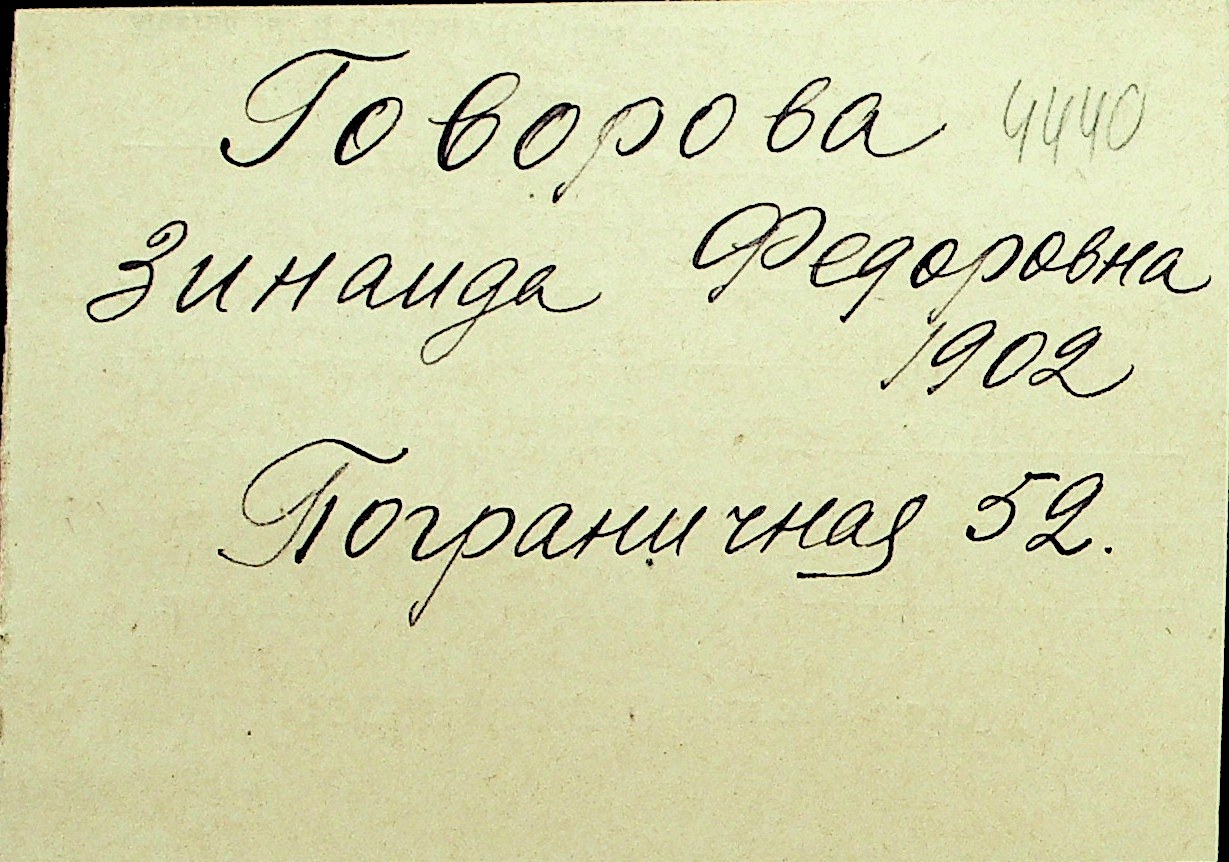 Говорова 4440
Зинаида Федоровна
1902
Пограничная 52.